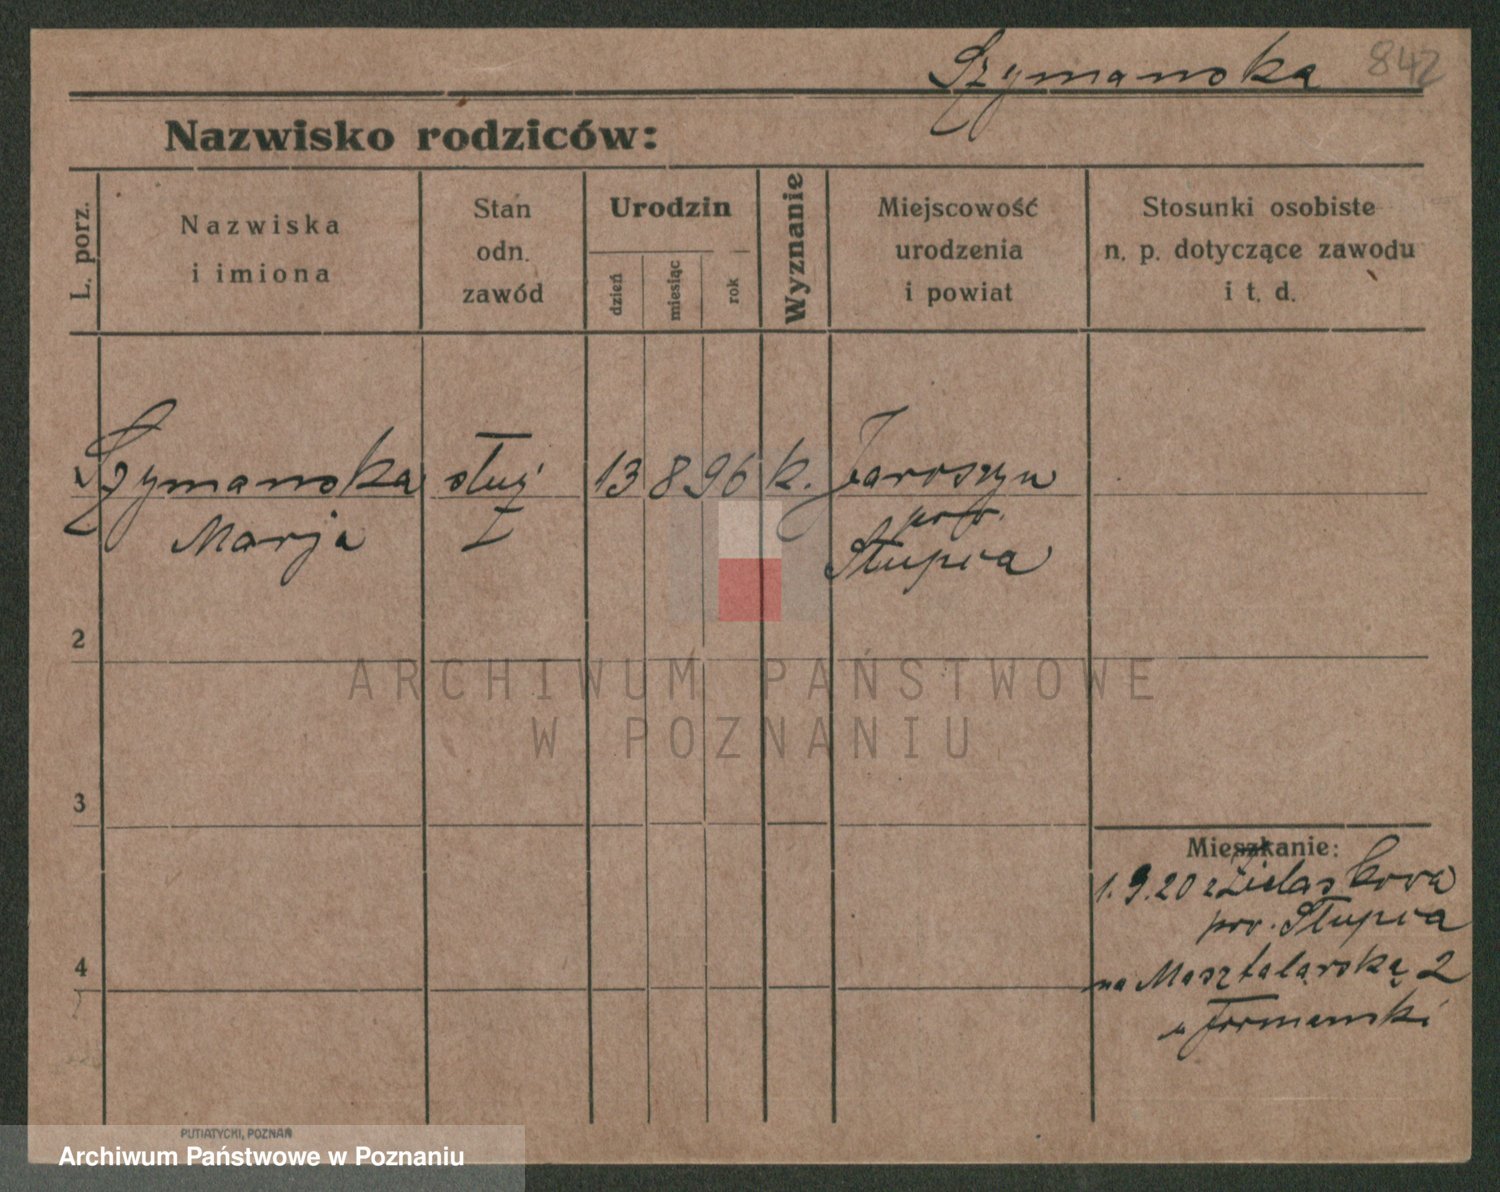 Szymanska 842
Nazwisko rodziców:
L. porz.
Nazwiska
i imiona
Stan
odn.
zawód
Urodzin
dzień
miesiąc
rok
Wyznanie
Miejscowość
urodzenia
i powiat
Stosunki osobiste
n. p. dotyczące zawodu
i t. d.
Szymanska służ 13 8 96 k. Jaroszyn
Marja I pow.
Słupca
2
3
4
Mieszkanie:
1.9.20 z
pow. Słupca
na Masztalarską 2
u
ARCHIWUM PAŃSTWOWE
W POZNANIU
PUTIATYCKI, POZNAŃ
Archiwum Państwowe w Poznaniu